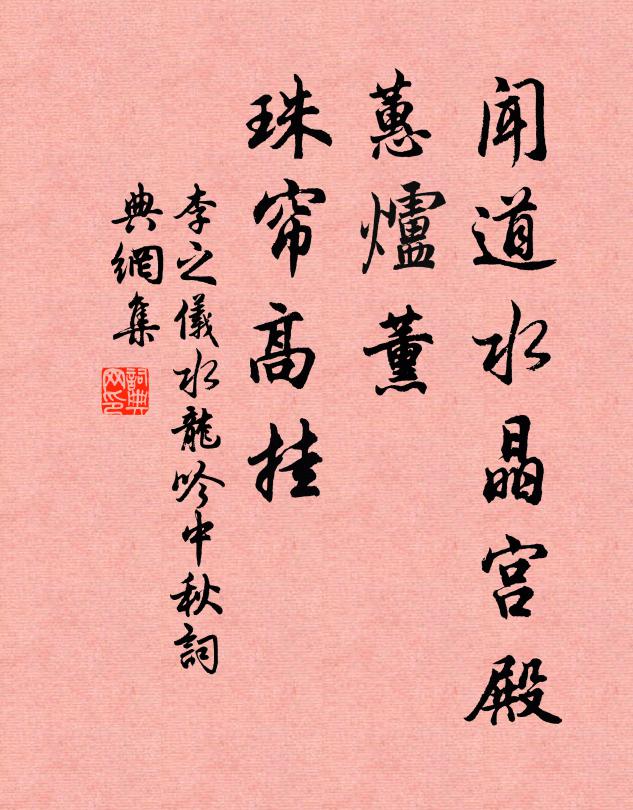 闻道水晶宫殿
蕙爐薰
珠帘高挂
李之儀水龍吟中秋詞
典網集
詞典網印